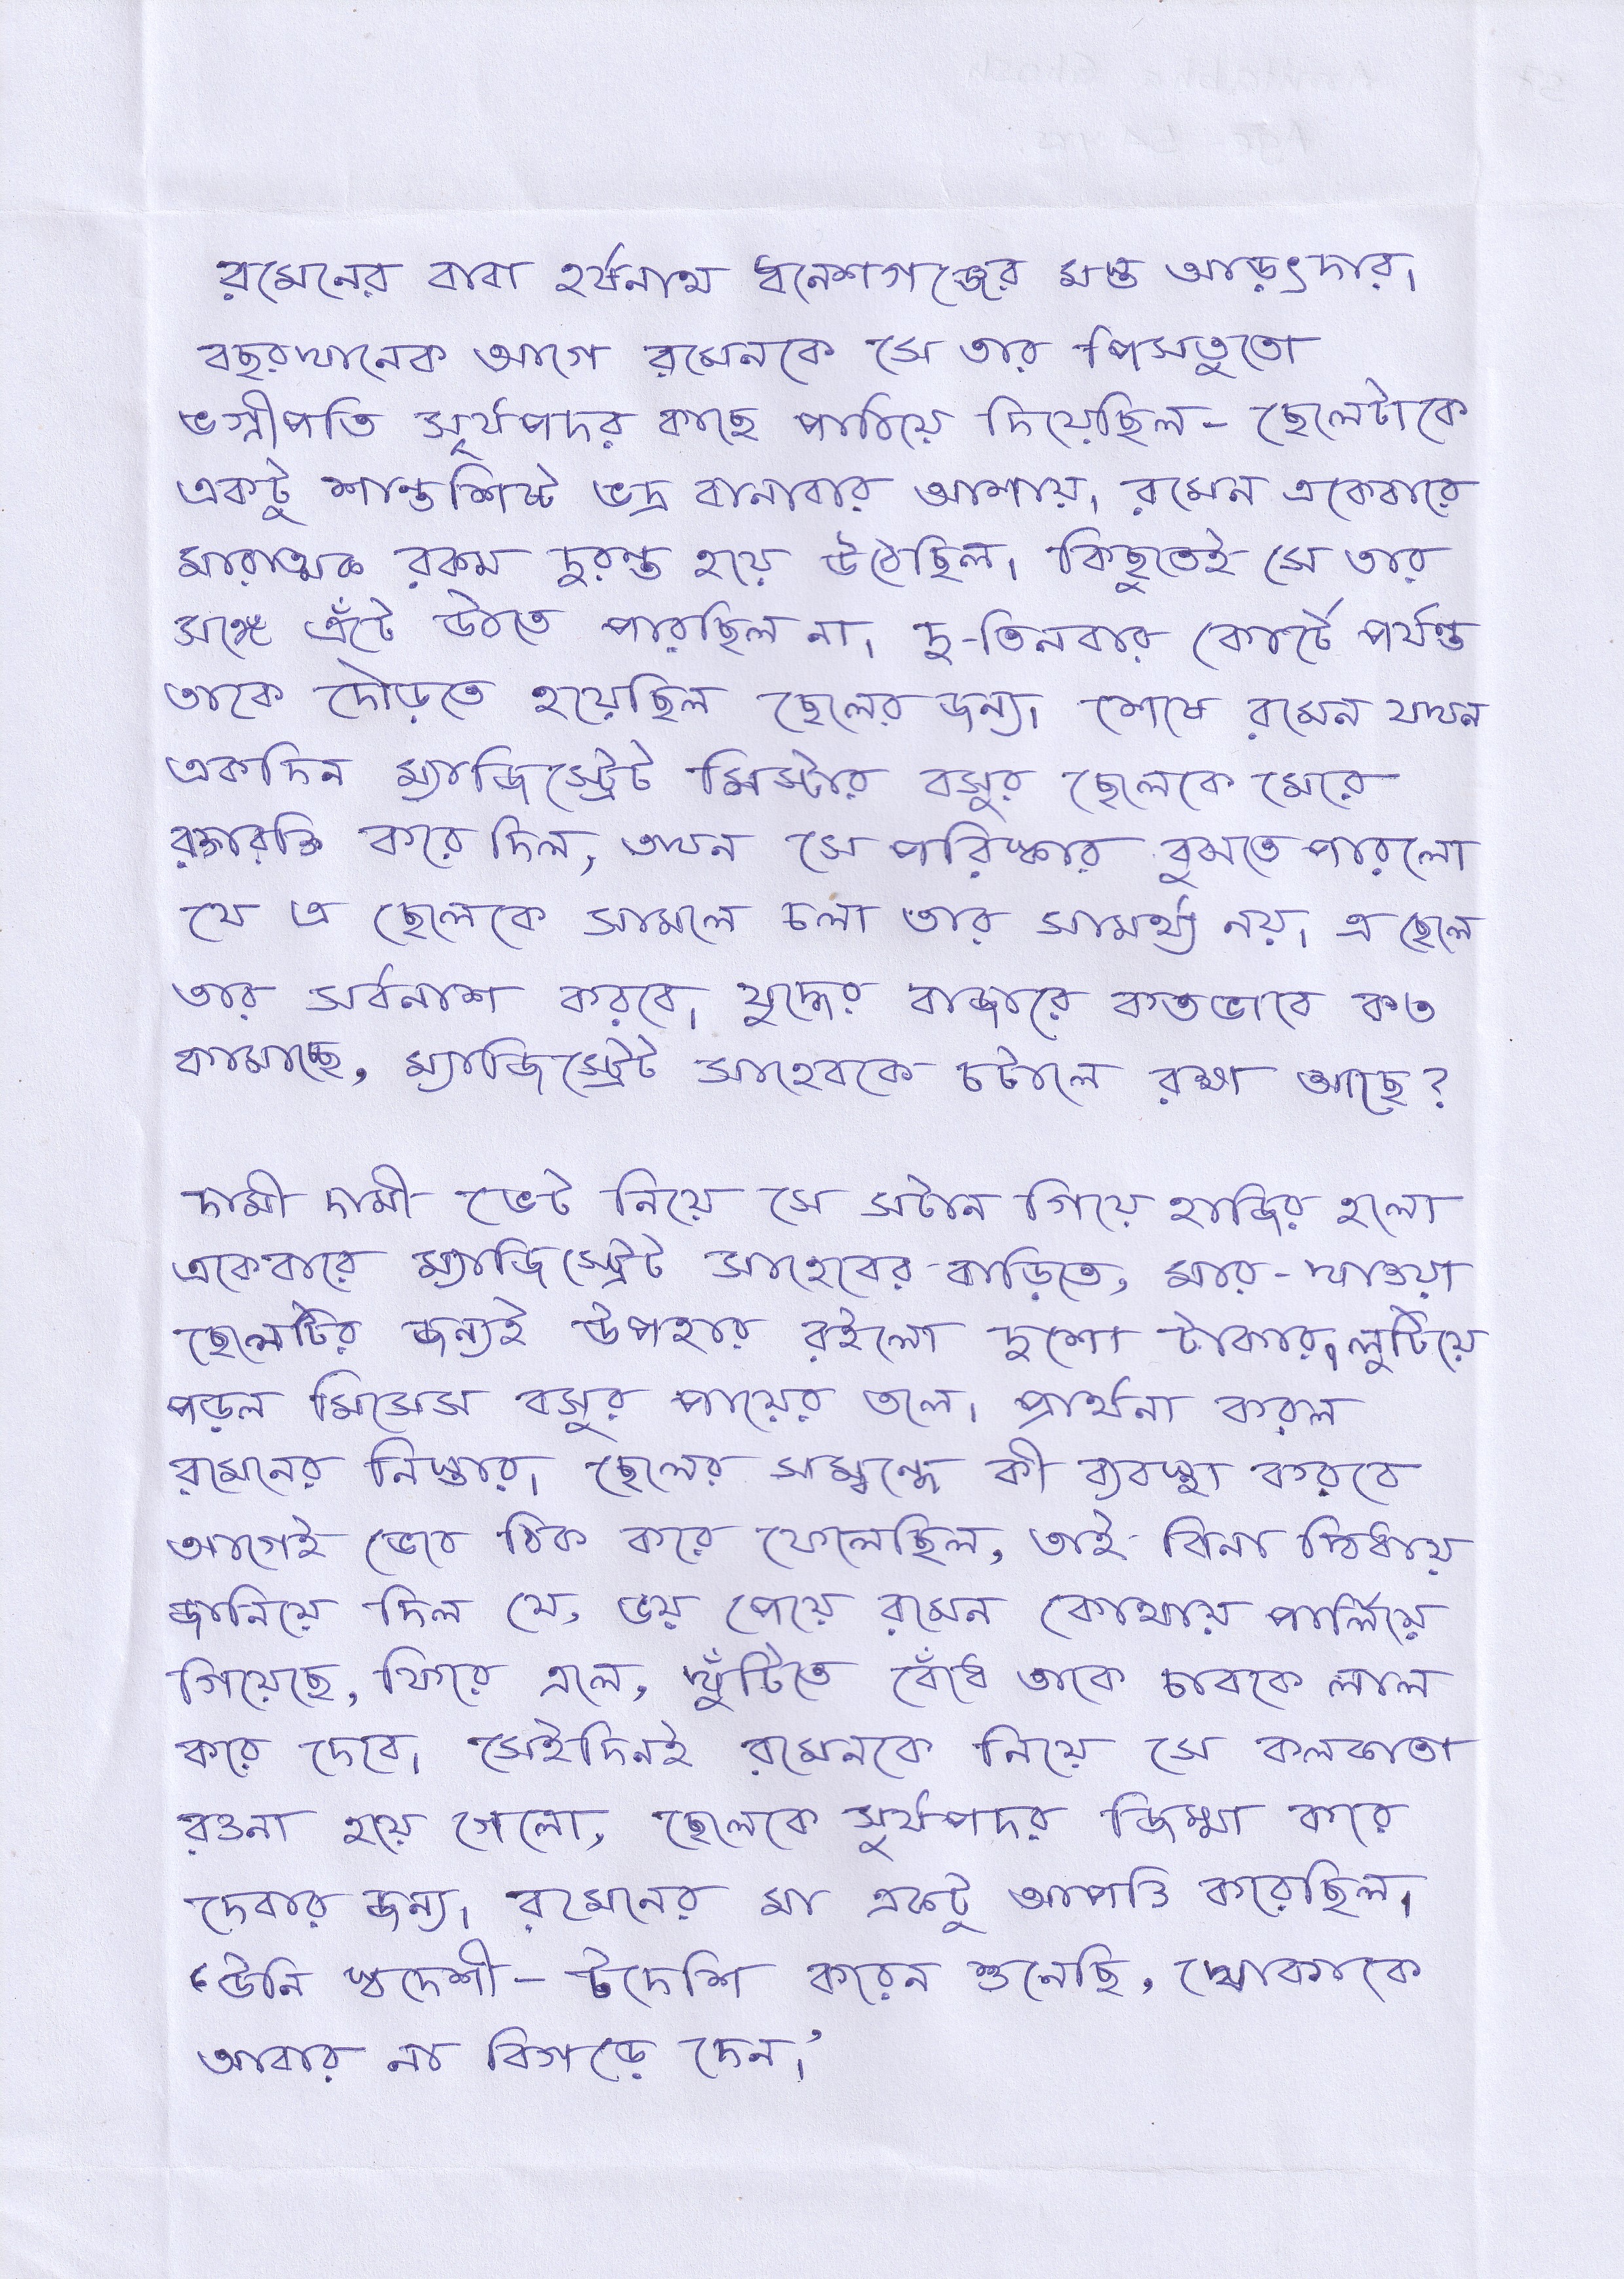 রমেনের বাবা হর্ষনাথ ধনেশগঞ্জের মস্ত আড়ৎদার।
বছরখানেক আগে রমেনকে সে তার পিসতুতো
ভগ্নীপতি সূর্যপদর কাছে পাঠিয়ে দিয়েছিল - ছেলেটাকে
একটু শান্তশিষ্ট ভদ্র বানাবার আশায়। রমেন একেবারে
মারাত্মক রকম দুরন্ত হয়ে উঠেছিল। কিছুতেই সে তার
সঙ্গে এঁটে উঠতে পারছিল না। দু-তিনবার কোর্টে পর্যন্ত
তাকে দৌড়তে হয়েছিল ছেলের জন্য। শেষে রমেন যখন
একদিন ম্যাজিস্ট্রেট মিস্টার বসুর ছেলেকে মেরে
রক্তারক্তি করে দিল, তখন সে পরিষ্কার বুঝতে পারলো
যে এ ছেলেকে সামলে চলা তার সামর্থ্য নয়। এ ছেলে
তার সর্বনাশ করবে। যুদ্ধের বাজারে কতভাবে কত
কামাচ্ছে, ম্যাজিস্ট্রেট সাহেবকে চটালে রক্ষা আছে?
দামী দামী ভেট নিয়ে সে সটান গিয়ে হাজির হলো
একেবারে ম্যাজিস্ট্রেট সাহেবের বাড়িতে, মার-খাওয়া
ছেলেটির জন্যই উপহার রইলো দুশো টাকার। লুটিয়ে
পড়ল মিসেস বসুর পায়ের তলে। প্রার্থনা করল
রমেনের নিস্তার। ছেলের সম্বন্ধে কী ব্যবস্থা করবে
আগেই ভেবে ঠিক করে ফেলেছিল, তাই বিনা দ্বিধায়
জানিয়ে দিল যে, ভয় পেয়ে রমেন কোথায় পালিয়ে
গিয়েছে, ফিরে এলে, খুঁটিতে বেঁধে তাকে চাবকে লাল
করে দেবে। সেইদিনই রমেনকে নিয়ে সে কলকাতা
রওনা হয়ে গেলো, ছেলেকে সূর্যপদর জিম্মা করে
দেবার জন্য। রমেনের মা একটু আপত্তি করেছিল।
'উনি স্বদেশী - টদেশি করেন শুনেছি, খোকাকে
আবার না বিগড়ে দেন।'